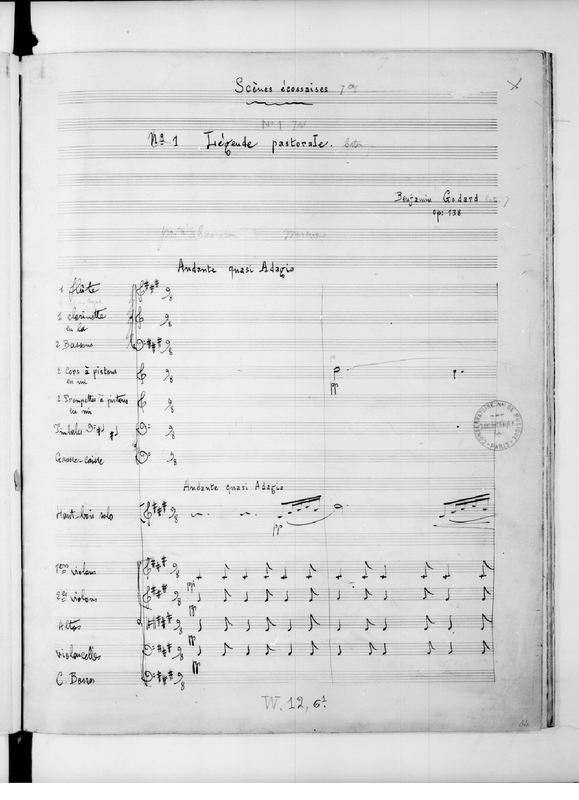 Scènes écossaises
Nº 1 Légende pastorale.
Benjamin Godard
op: 138
Andante quasi Adagio
1 flûte
1 clarinette
en la
2 Bassons
2 Cors à pistons
en mi
pp
2 Trompettes à pistons
en mi
Timbales
Grosse-caisse
Andante quasi Adagio
Haut-bois solo
pp
1ers violons
pp
2ds violons
pp
Altos
pp
Violoncelles
pp
C. Basses
W. 12, 6¹